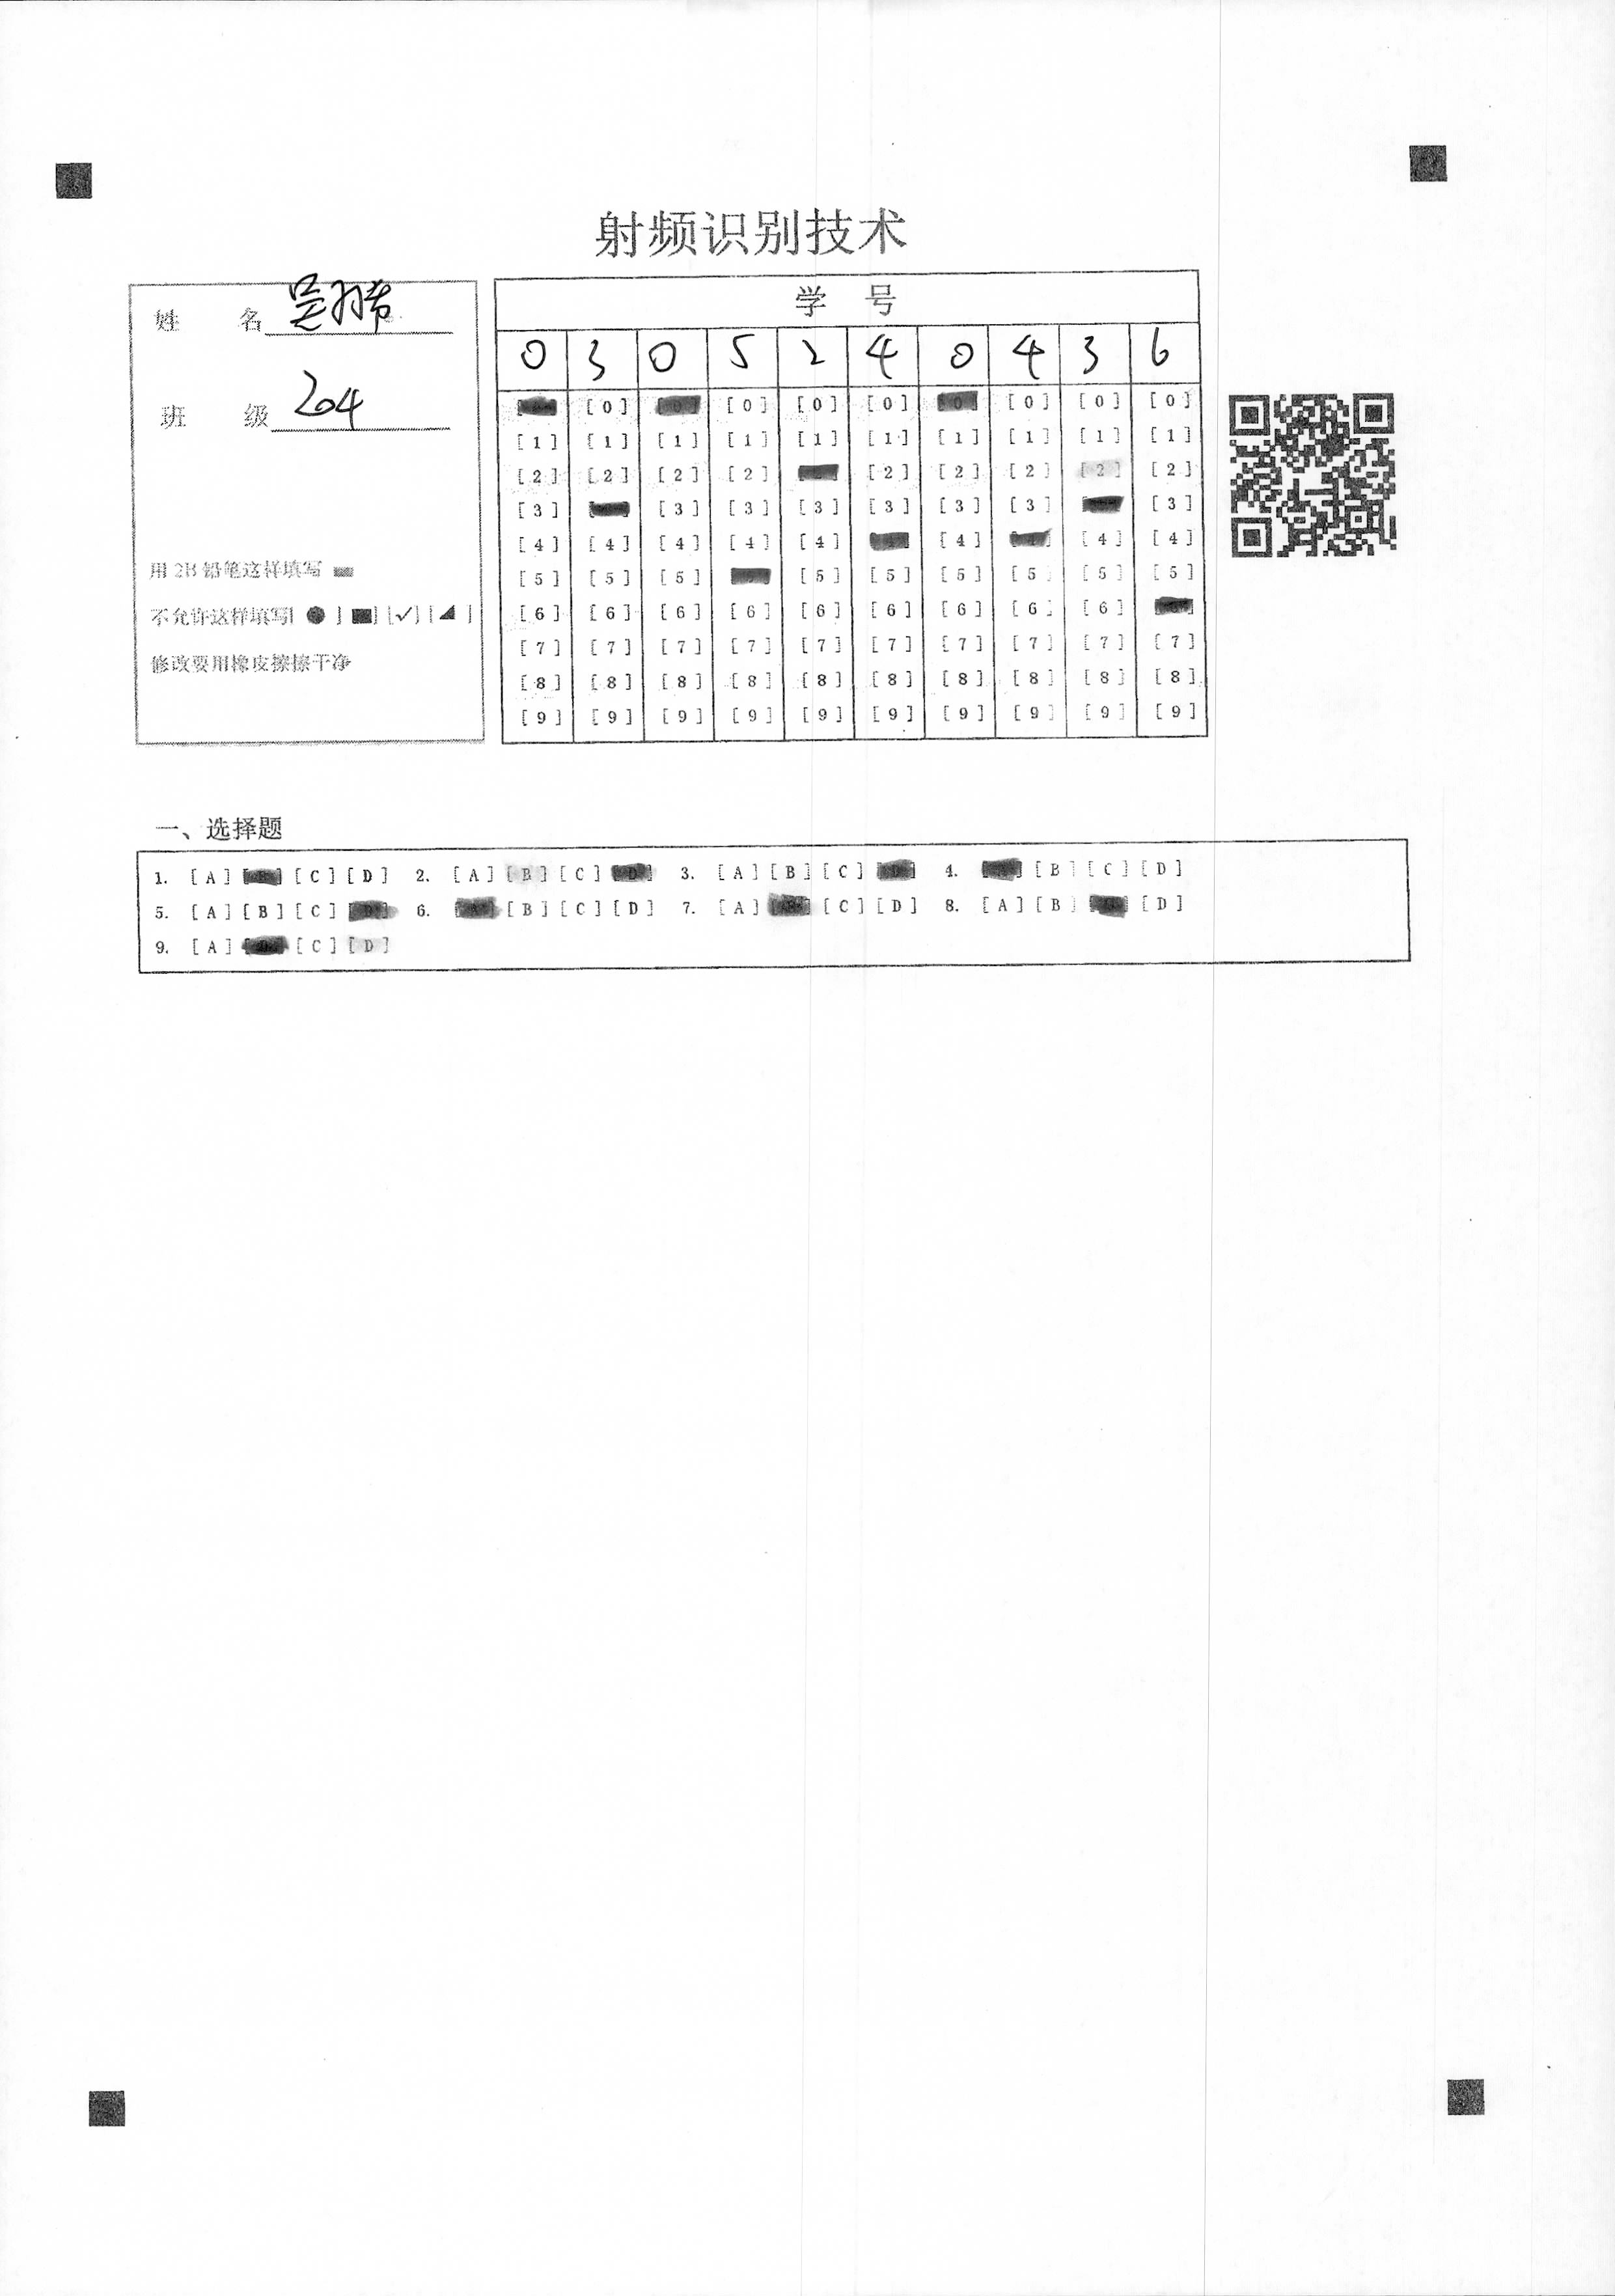 射频识别技术
姓 名
班 级 204
用 2B 铅笔这样填写
不允许这样填写[ ● ] [■] [✓] [◢ ]
修改要用橡皮擦擦干净
学 号
0 3 0 5 2 4 0 4 3 6
[0] [0] [0] [0] [0] [0] [0] [0]
[1] [1] [1] [1] [1] [1] [1] [1] [1] [1]
[2] [2] [2] [2] [2] [2] [2] [2] [2]
[3] [3] [3] [3] [3] [3] [3] [3]
[4] [4] [4] [4] [4] [4] [4] [4]
[5] [5] [5] [5] [5] [5] [5] [5] [5]
[6] [6] [6] [6] [6] [6] [6] [6] [6]
[7] [7] [7] [7] [7] [7] [7] [7] [7] [7]
[8] [8] [8] [8] [8] [8] [8] [8] [8] [8]
[9] [9] [9] [9] [9] [9] [9] [9] [9] [9]
一、选择题
1. [A] [B] [C] [D] 2. [A] [B] [C] [D] 3. [A] [B] [C] [D] 4. [A] [B] [C] [D]
5. [A] [B] [C] [D] 6. [A] [B] [C] [D] 7. [A] [B] [C] [D] 8. [A] [B] [C] [D]
9. [A] [B] [C] [D]